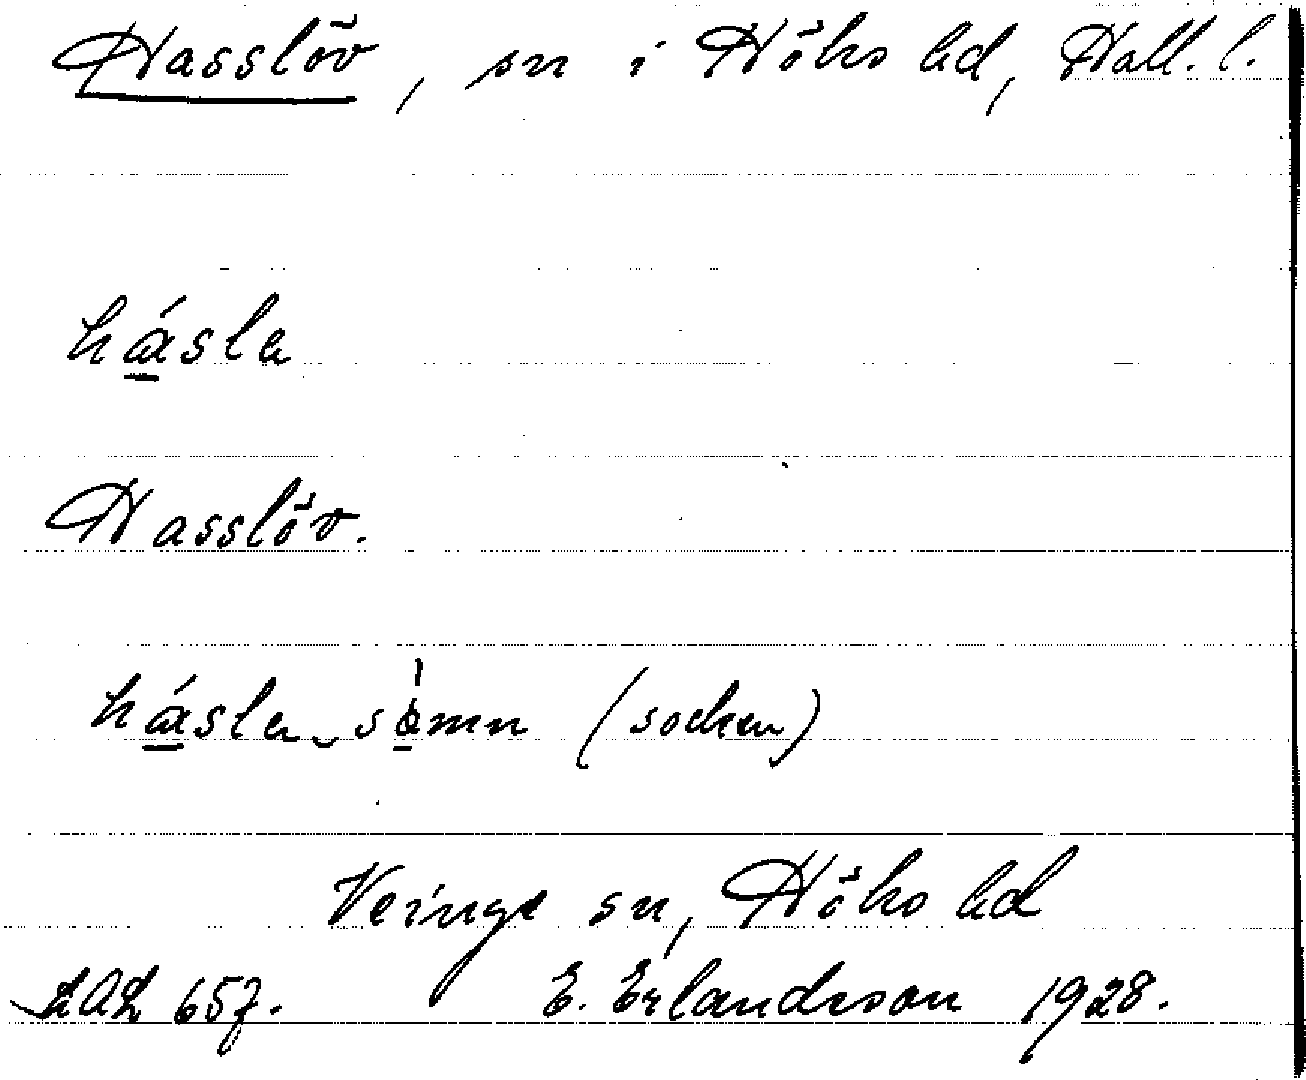 Hasslöv, sn i Höks hd, Hall. l.
hásla
Hasslöv.
hásla-sòmn (socken)
Veinge sn, Höks hd
LAL 657. E. Erlandsson 1928.